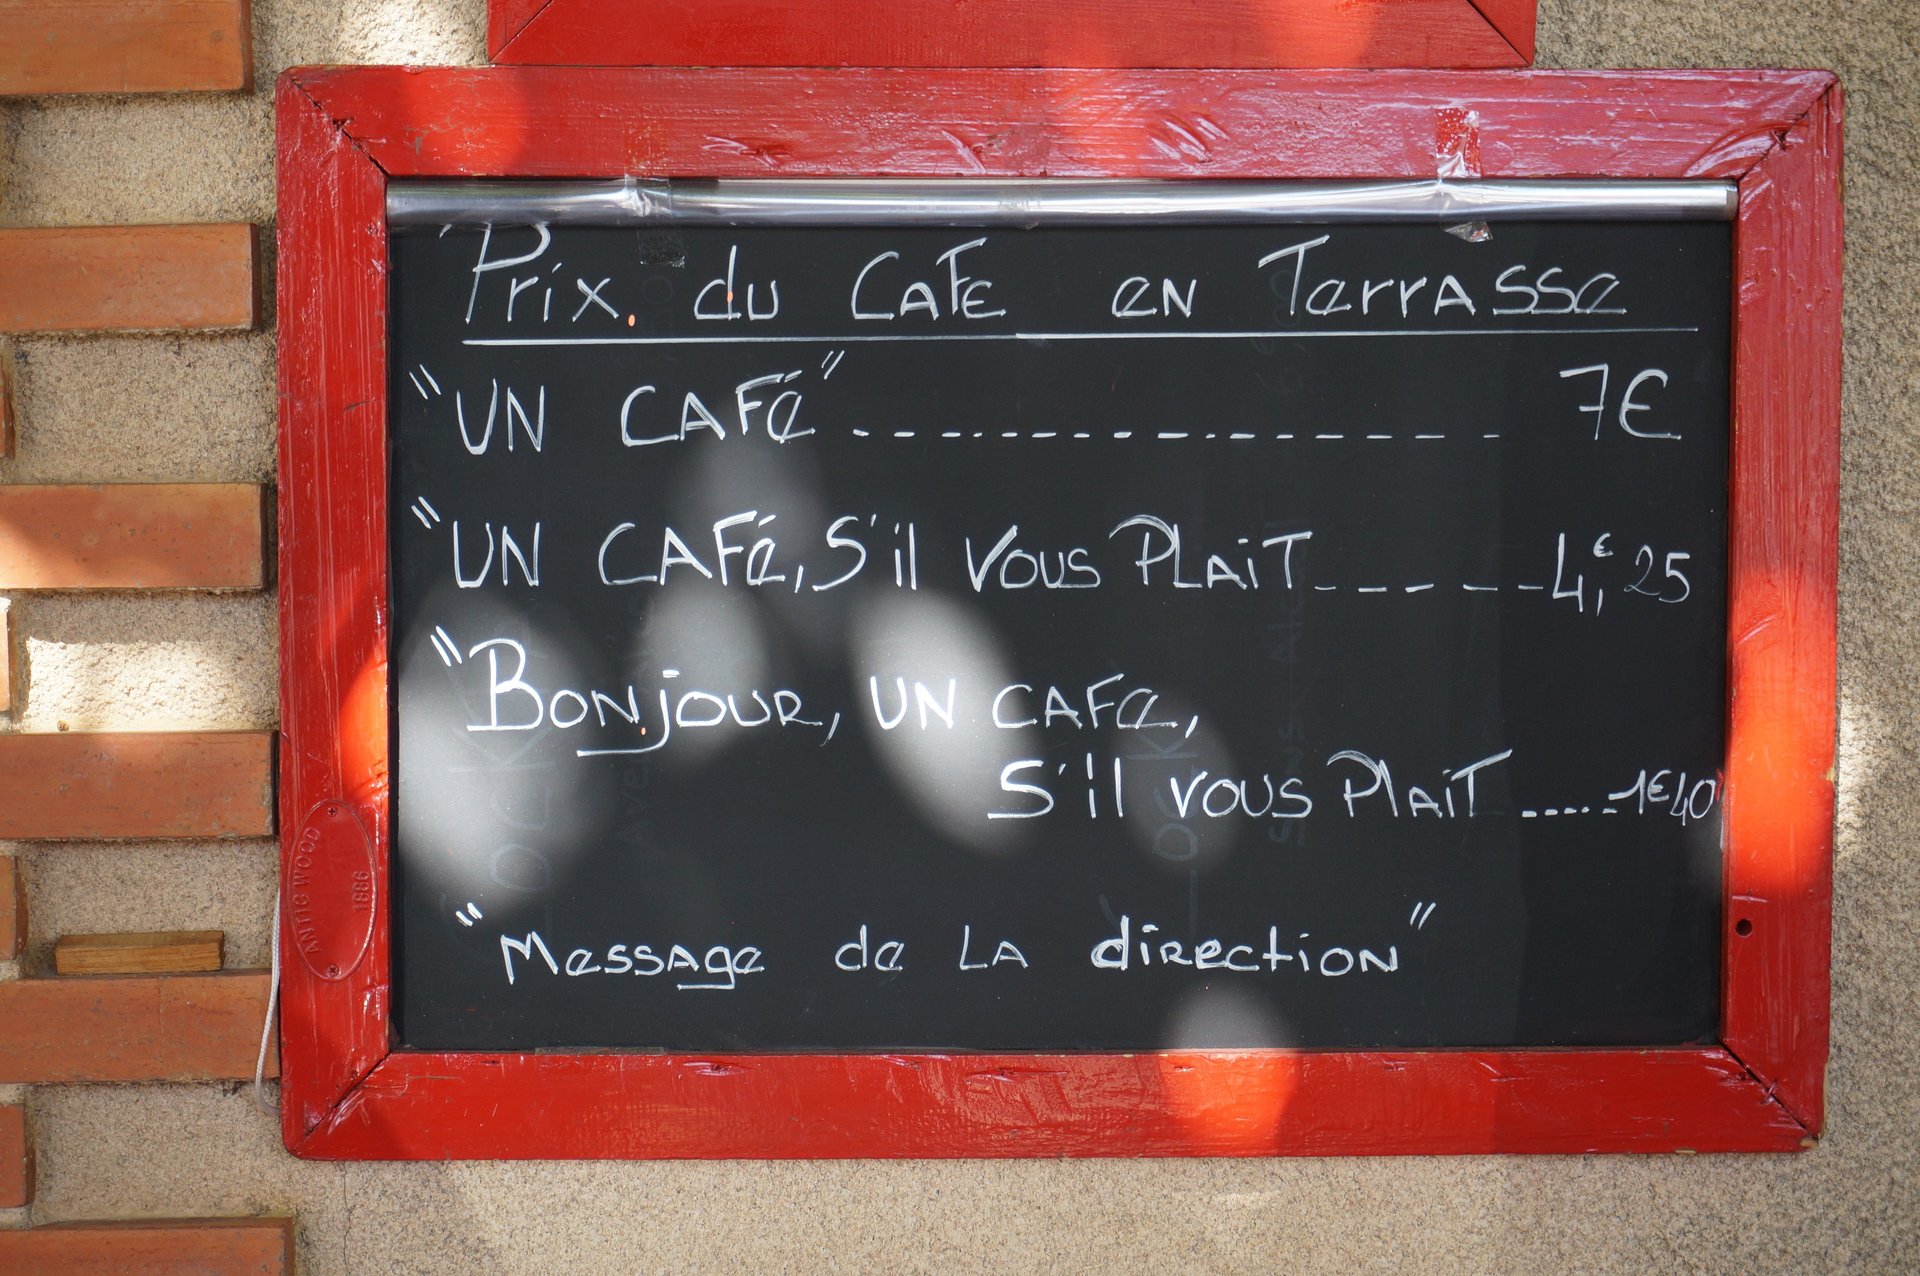 Prix du CAFE en TerrASSe
"UN CAFé" 7€
"UN CAFé, S'il Vous PLAiT 4,€25
"Bonjour, UN CAFe,
S'il vous Plaît 1€40
"Message de LA direction"
ANTIC WOOD
1886